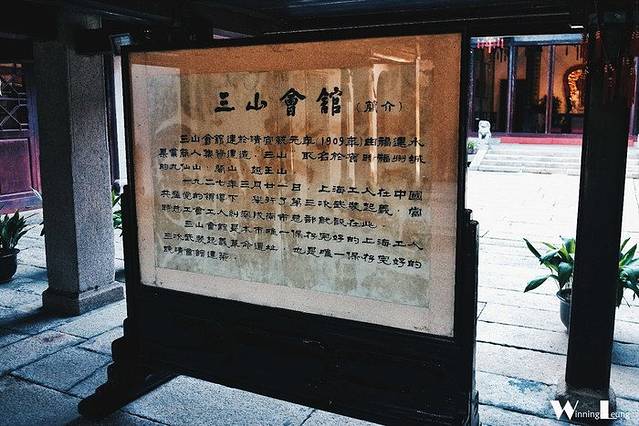 三山會館(簡介)
三山會館建於清宣統元年(1909年)由福建水
果業商人集資建造,三山,取名於省內福州城
的九仙山,閩山,越王山.
一九二七年三月廿一日,上海工人在中國
共產黨的領導下,舉行了第三次武裝起義,當
時總工會工人糾察隊南市總部就設在此.
三山會館是本市唯一保存完好的上海工人
三次武裝起義革命遺址,也是唯一保存完好的
晚清會館建築.
Winning Leung